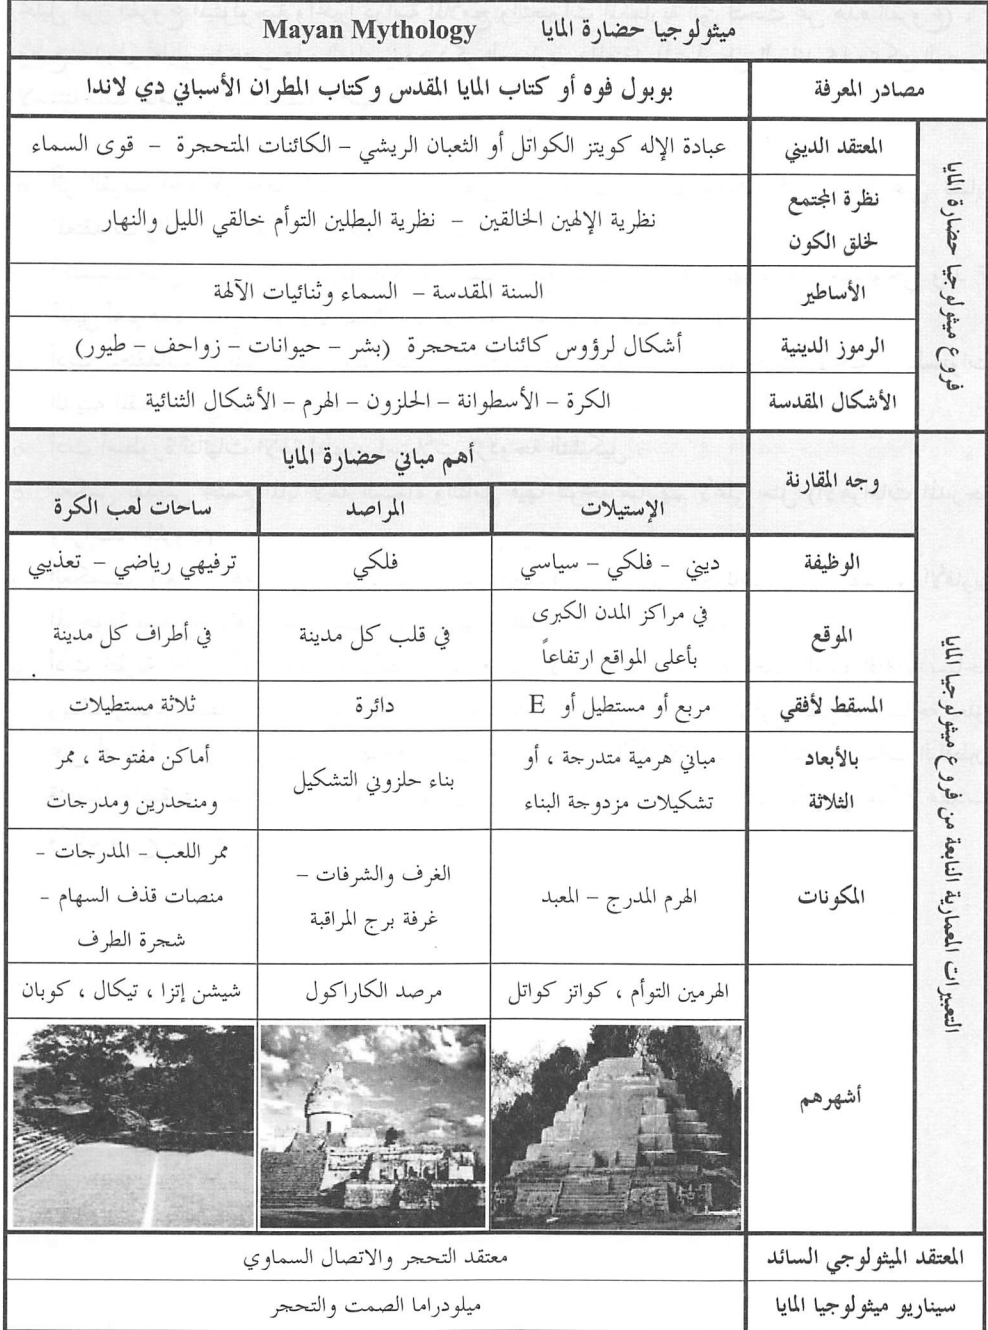 ميثولوجيا حضارة المايا Mayan Mythology
مصادر المعرفة
بوبول فوه أو كتاب المايا المقدس وكتاب المطران الأسباني دي لاندا
فروع ميثولوجيا حضارة المايا
المعتقد الديني
عبادة الإله كويتز الكواتل أو الثعبان الريشي – الكائنات المتحجرة – قوى السماء
نظرة المجتمع
لخلق الكون
نظرية الإلهين الخالقين – نظرية البطلين التوأم خالقي الليل والنهار
الأساطير
السنة المقدسة – السماء وثنائيات الآلهة
الرموز الدينية
أشكال لرؤوس كائنات متحجرة (بشر – حيوانات – زواحف – طيور)
الأشكال المقدسة
الكرة – الأسطوانة – الحلزون – الهرم – الأشكال الثنائية
التعبيرات المعمارية النابعة من فروع ميثولوجيا المايا
وجه المقارنة
أهم مباني حضارة المايا
الإستيلات
المراصد
ساحات لعب الكرة
الوظيفة
ديني - فلكي – سياسي
فلكي
ترفيهي رياضي – تعذيبي
الموقع
في مراكز المدن الكبرى
بأعلى المواقع ارتفاعاً
في قلب كل مدينة
في أطراف كل مدينة
المسقط لأفقي
مربع أو مستطيل أو E
دائرة
ثلاثة مستطيلات
بالأبعاد
الثلاثة
مباني هرمية متدرجة ، أو
تشكيلات مزدوجة البناء
بناء حلزوني التشكيل
أماكن مفتوحة ، ممر
ومنحدرين ومدرجات
المكونات
الهرم المدرج – المعبد
الغرف والشرفات –
غرفة برج المراقبة
ممر اللعب – المدرجات –
منصات قذف السهام –
شجرة الطرف
أشهرهم
الهرمين التوأم ، كواتز كواتل
مرصد الكاراكول
شيشن إتزا ، تيكال ، كوبان
المعتقد الميثولوجي السائد
معتقد التحجر والاتصال السماوي
سيناريو ميثولوجيا المايا
ميلودراما الصمت والتحجر